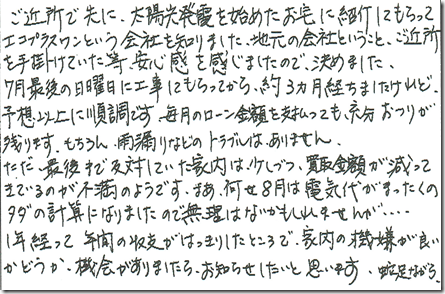 ご近所で先に、太陽光発電を始めたお宅に紹介してもらって
エコプラスワンという会社を知りました、地元の会社ということ、ご近所
を手掛けていた等、安心感を感じましたので、決めました、
7月最後の日曜日に工事してもらってから、約3ヵ月経ちましたけれど、
予想以上に順調です、毎月のローン金額を支払っても、充分おつりが
残ります、もちろん、雨漏りなどのトラブルは、ありません、
ただ、最後まで反対していた家内は、少しづつ、買取金額が減って
きているのが不満のようです、まあ、何せ8月は電気代がまったくの
タダの計算になりましたので無理はないかもしれませんが、・・・
1年経って年間の収支がはっきりしたところで、家内の機嫌が良い
かどうか、機会がありましたら、お知らせしたいと思います、蛇足ながら、